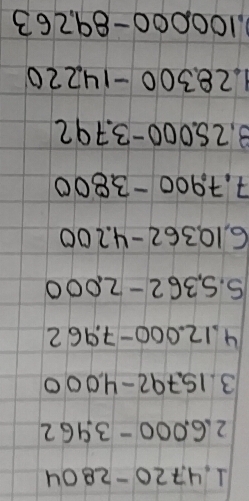 1. 4,720 - 2804
2. 6,000 - 3,962
3. 15,792 - 4,000
4. 12,000 - 7,962
5. 5,362 - 2,000
6. 10,362 - 4,200
7. 7,900 - 3,800
8. 25,000 - 3,792
28,300 - 14,220
100,000 - 89,263